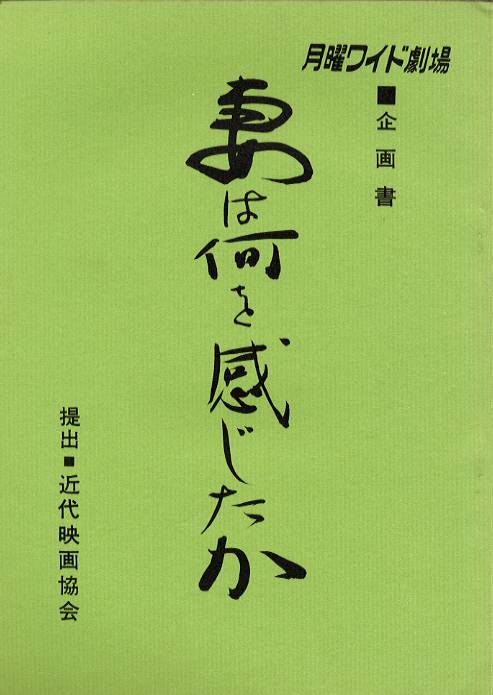 月曜ワイド劇場
■企画書
妻は何を感じたか
提出■近代映画協会